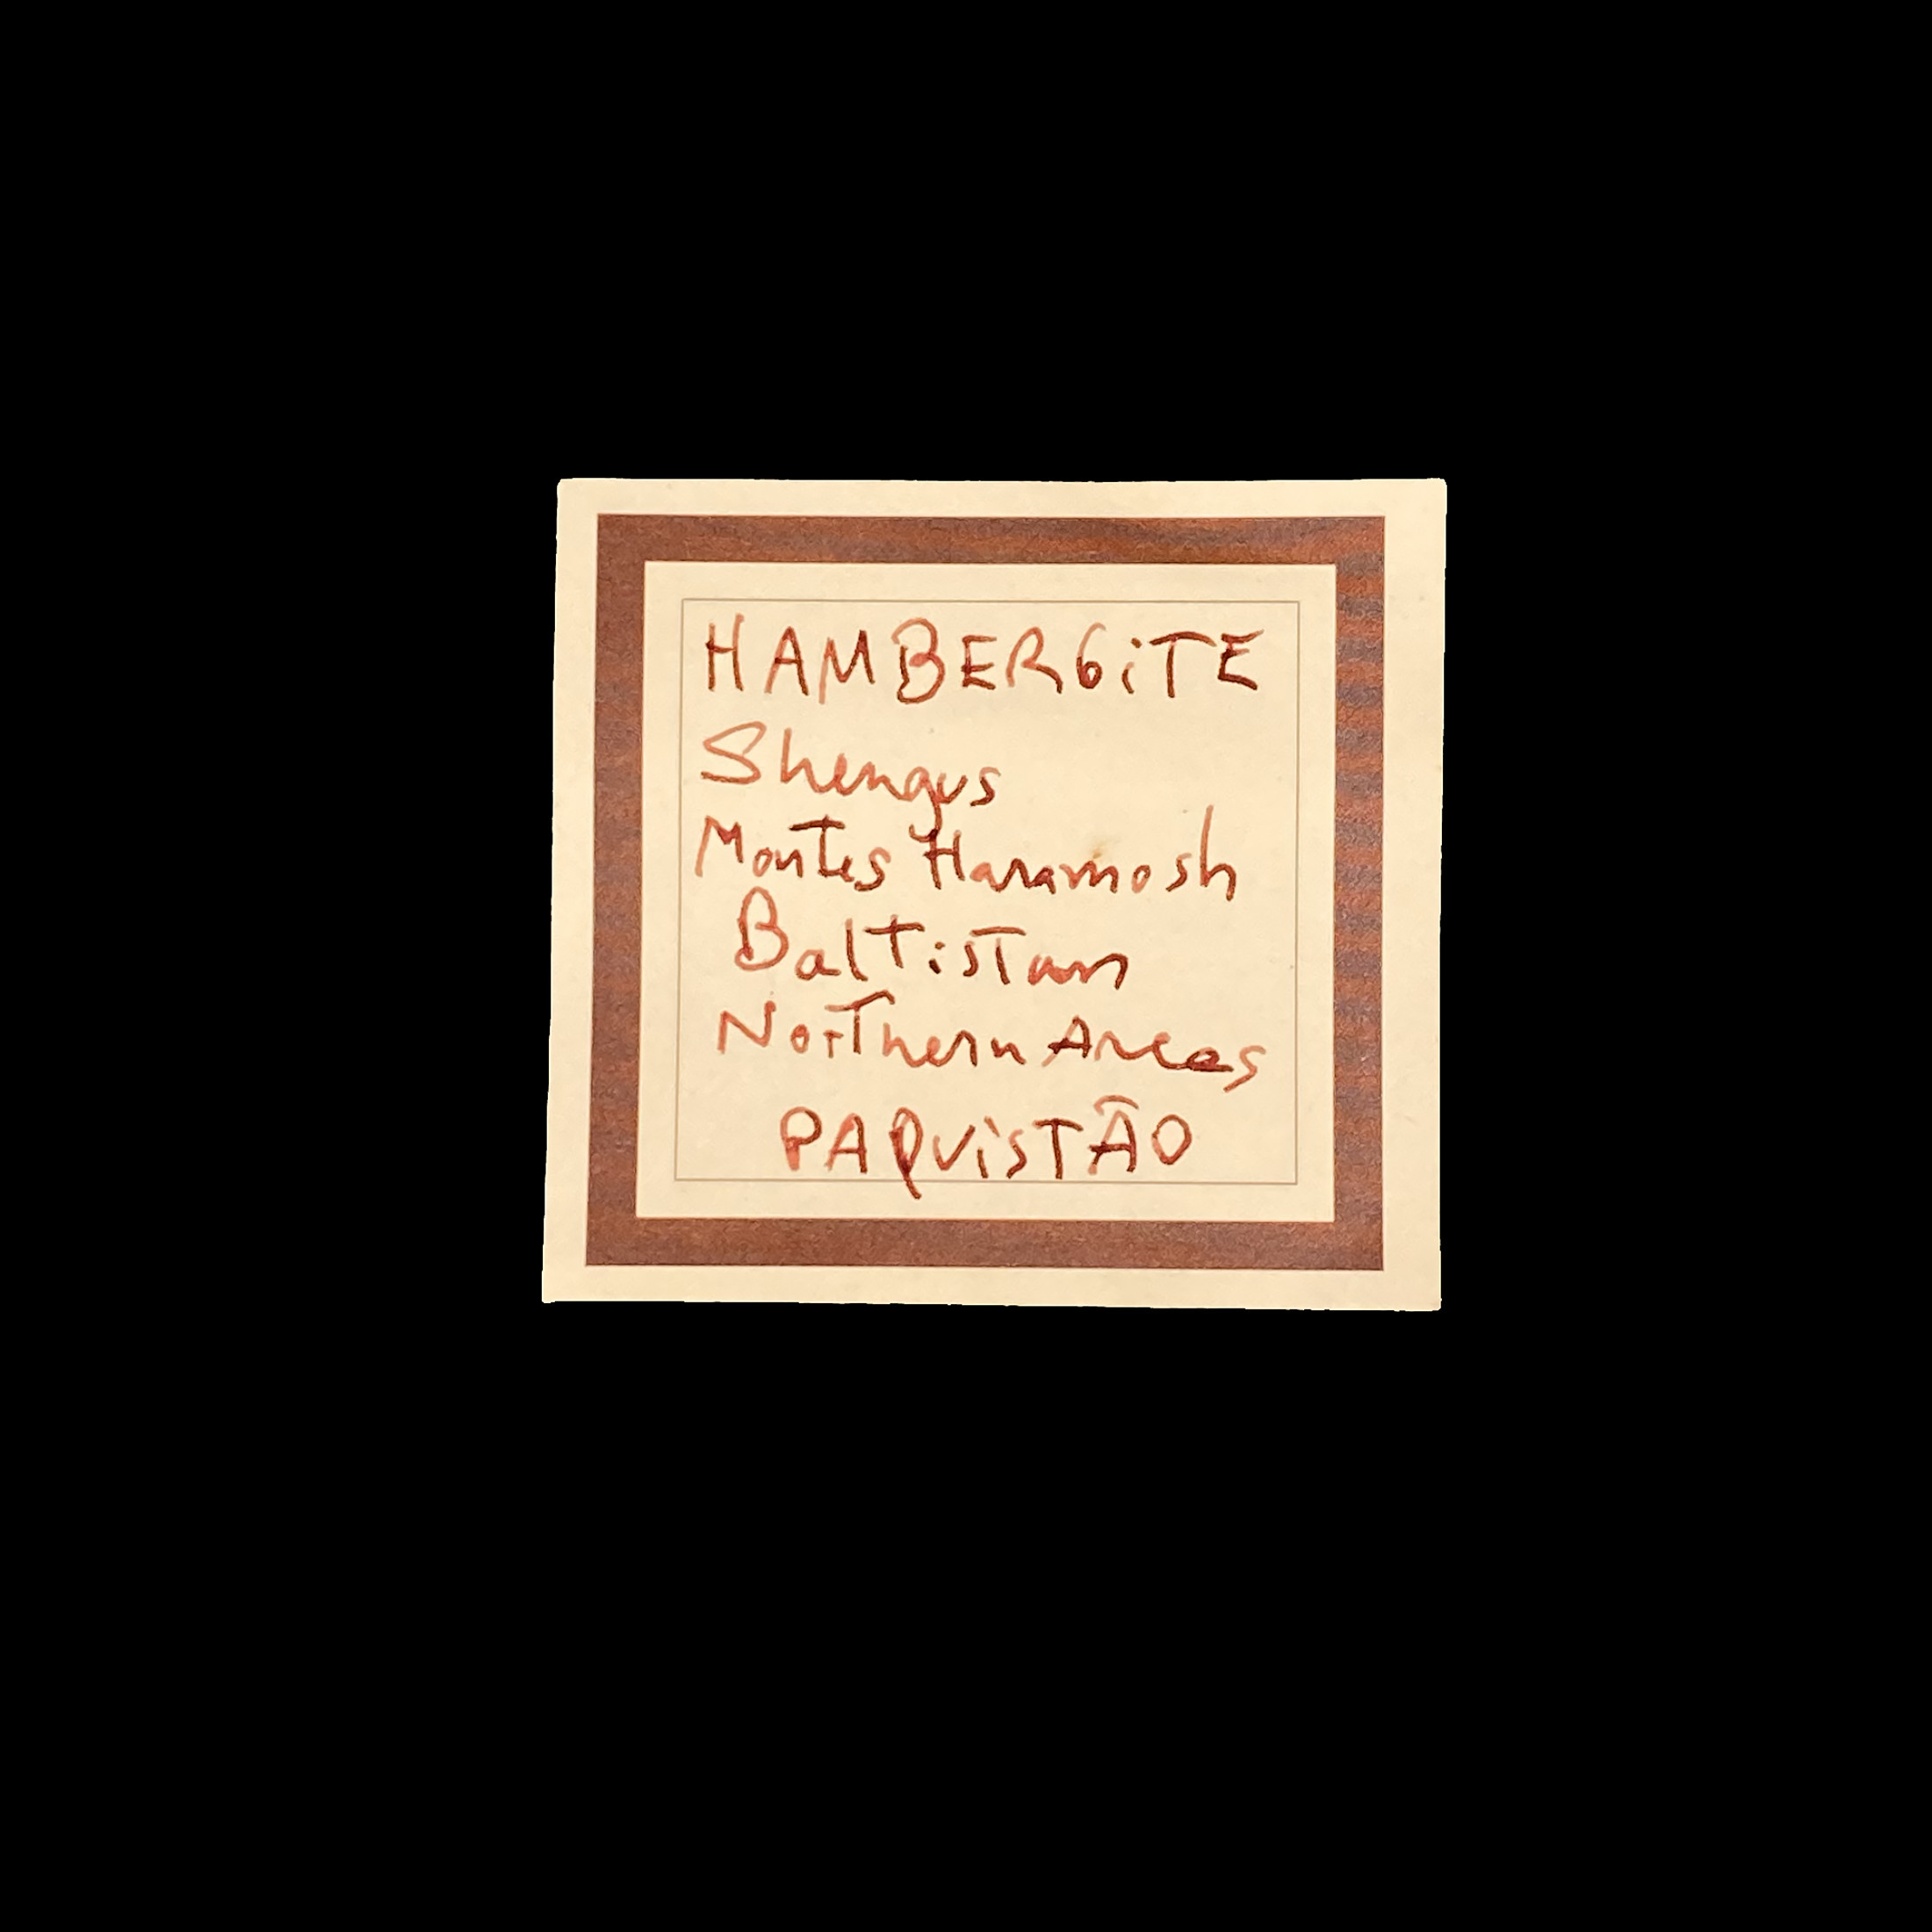 HAMBERGiTE
Shengus
Montes Haramosh
Baltistan
Northern Areas
PAQUiSTÃO